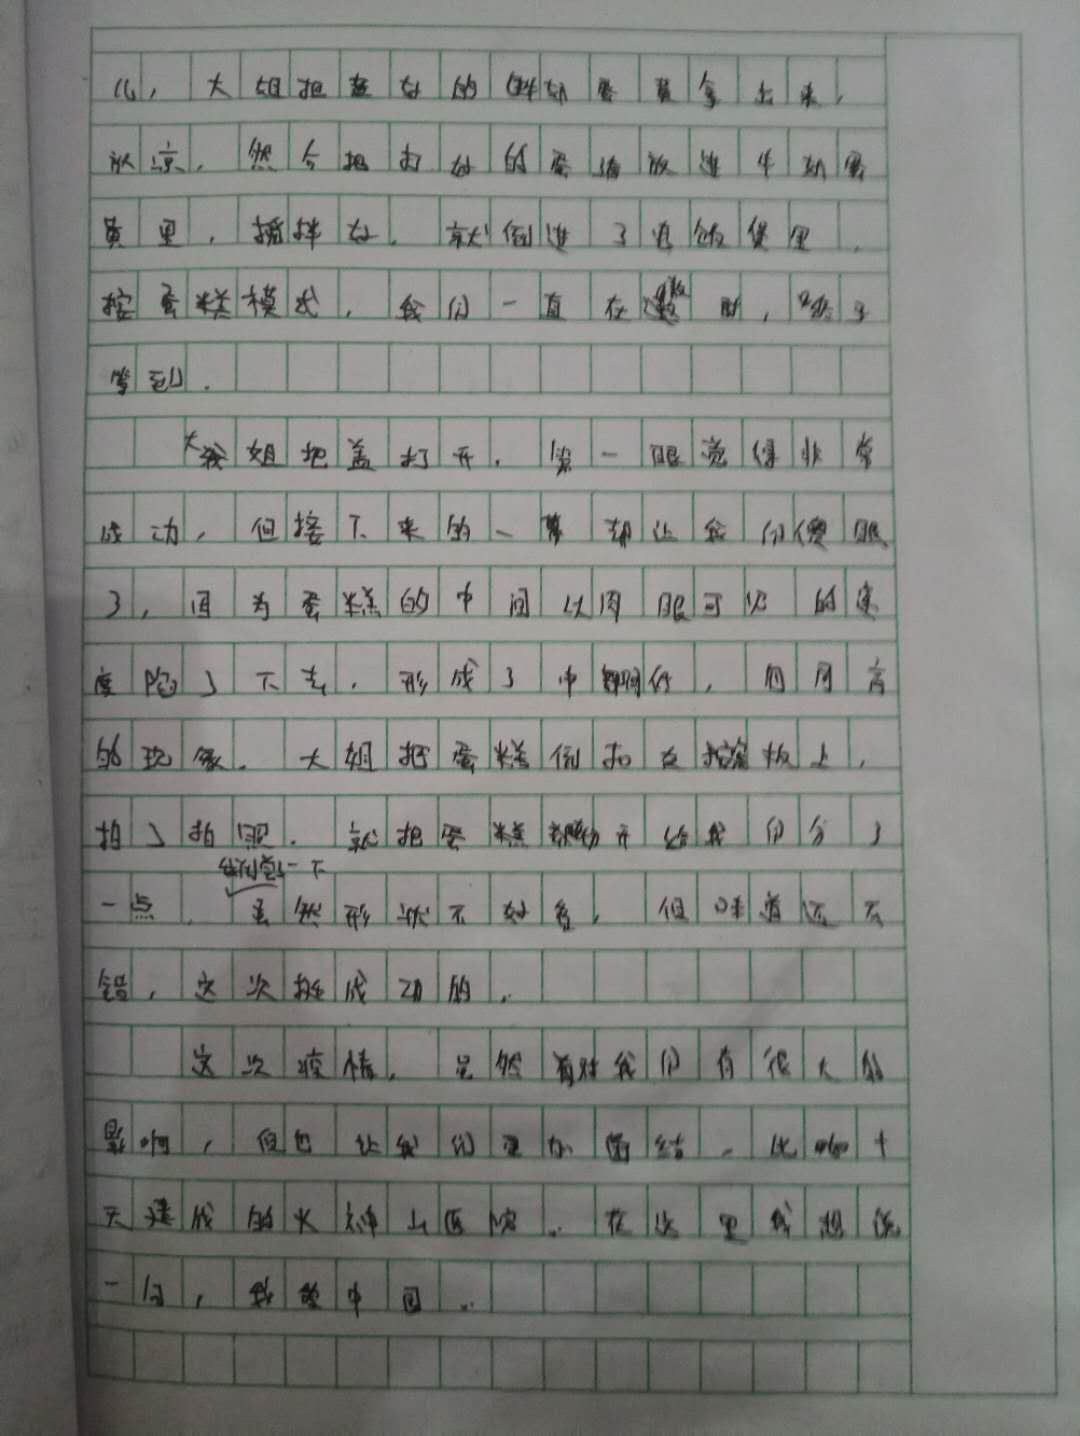 化，大姐把蒸好的牛奶蛋黄拿出来，
放凉，然后把打好的蛋清放进牛奶蛋
黄里，搅拌好，就倒进了电饭煲里，
按蛋糕模式，我们一直在数时，终于
等到。
大姐把盖打开，第一眼觉得非常
成功，但接下来的一幕却让我们傻眼
了，因为蛋糕的中间以肉眼可见的速
度陷了下去，形成了中间低，四周高
的现象。大姐把蛋糕倒扣在按板上，
拍了拍照，就把蛋糕切开给我们分了
一点，我们尝一下
虽然形状不好看，但味道还不
错，这次挺成功的。
这次疫情，虽然对我们有很大的
影响，但也让我们更加团结，比如十
天建成的火神山医院。在这里我想说
一句，我爱中国。